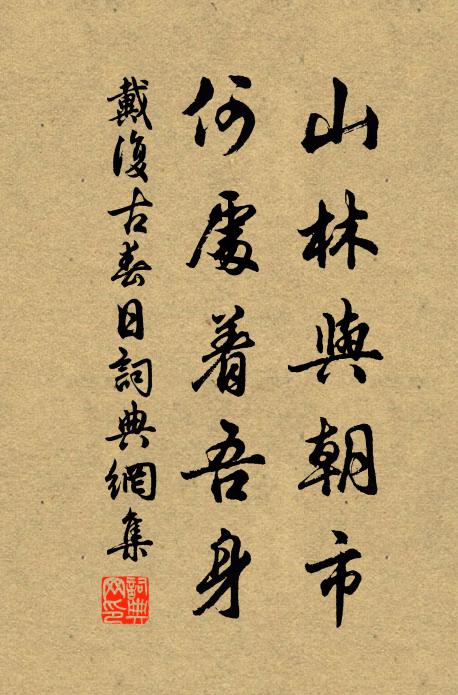 山林與朝市
何處着吾身
戴復古春日詞典網集
詞典網印